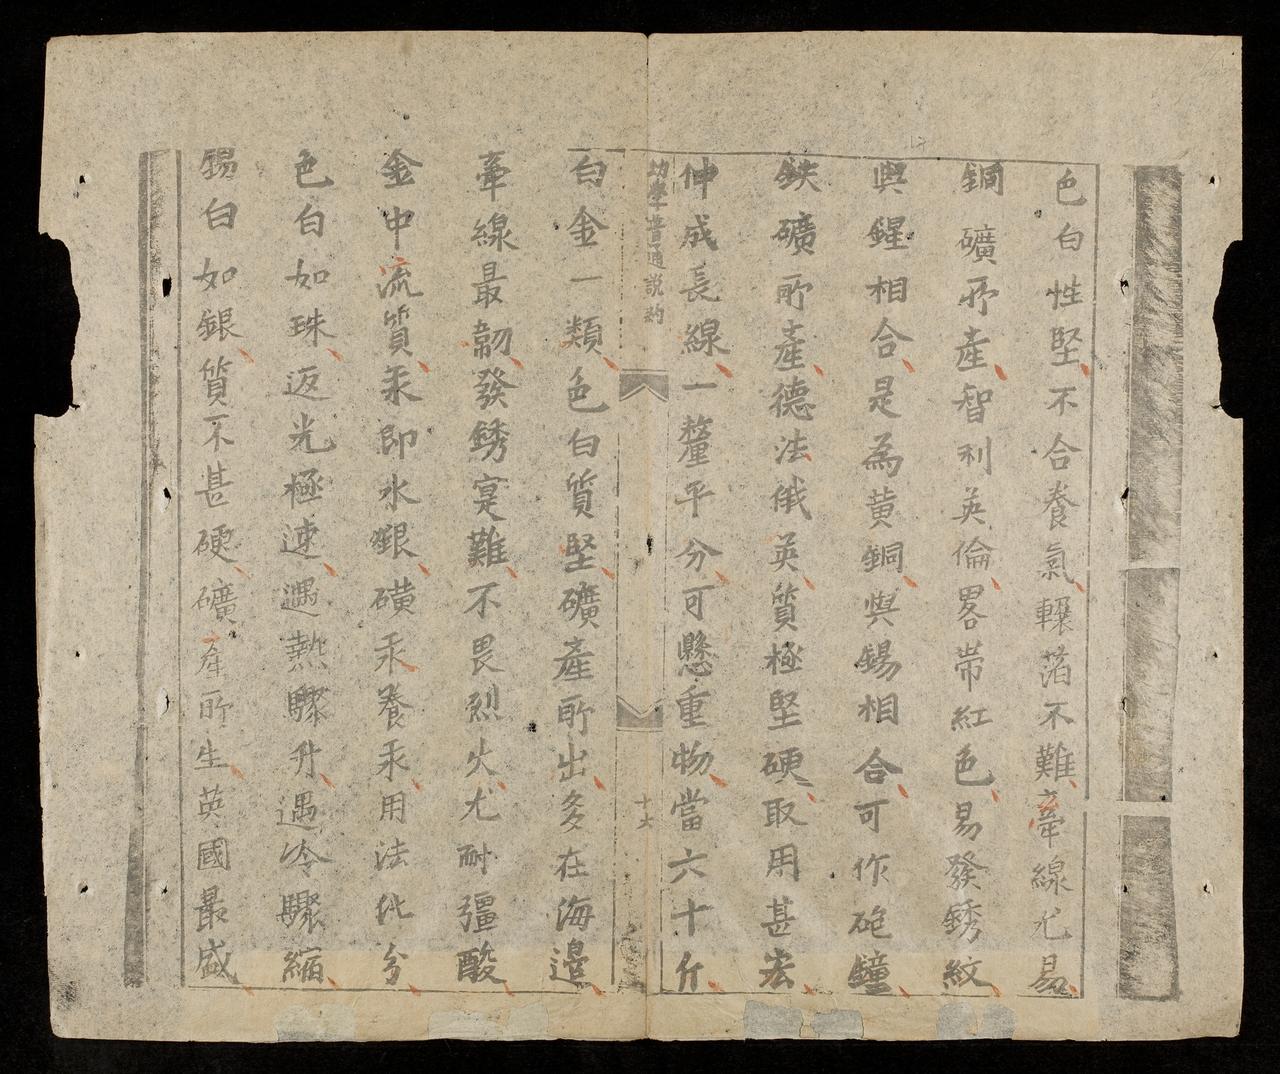 色白性堅不合養氣輾萡不難牽線尤易
銅礦所產智利英倫畧帶紅色易發銹紋
與鍟相合是為黄銅與錫相合可作砲鐘
鉄礦所產德法俄英質極堅硬取用甚宏
伸成長線一釐平分可懸重物當六十斤
幼學書通說約
十六
白金一類色白質堅礦產所出多在海邊
牽線最韌發銹寔難不畏烈火尤耐彊酸
金中流質汞即水銀磺汞養汞用法化分
色白如珠返光極速遇熱驟升遇冷驟縮
錫白如銀質不甚硬礦產所生英國最盛